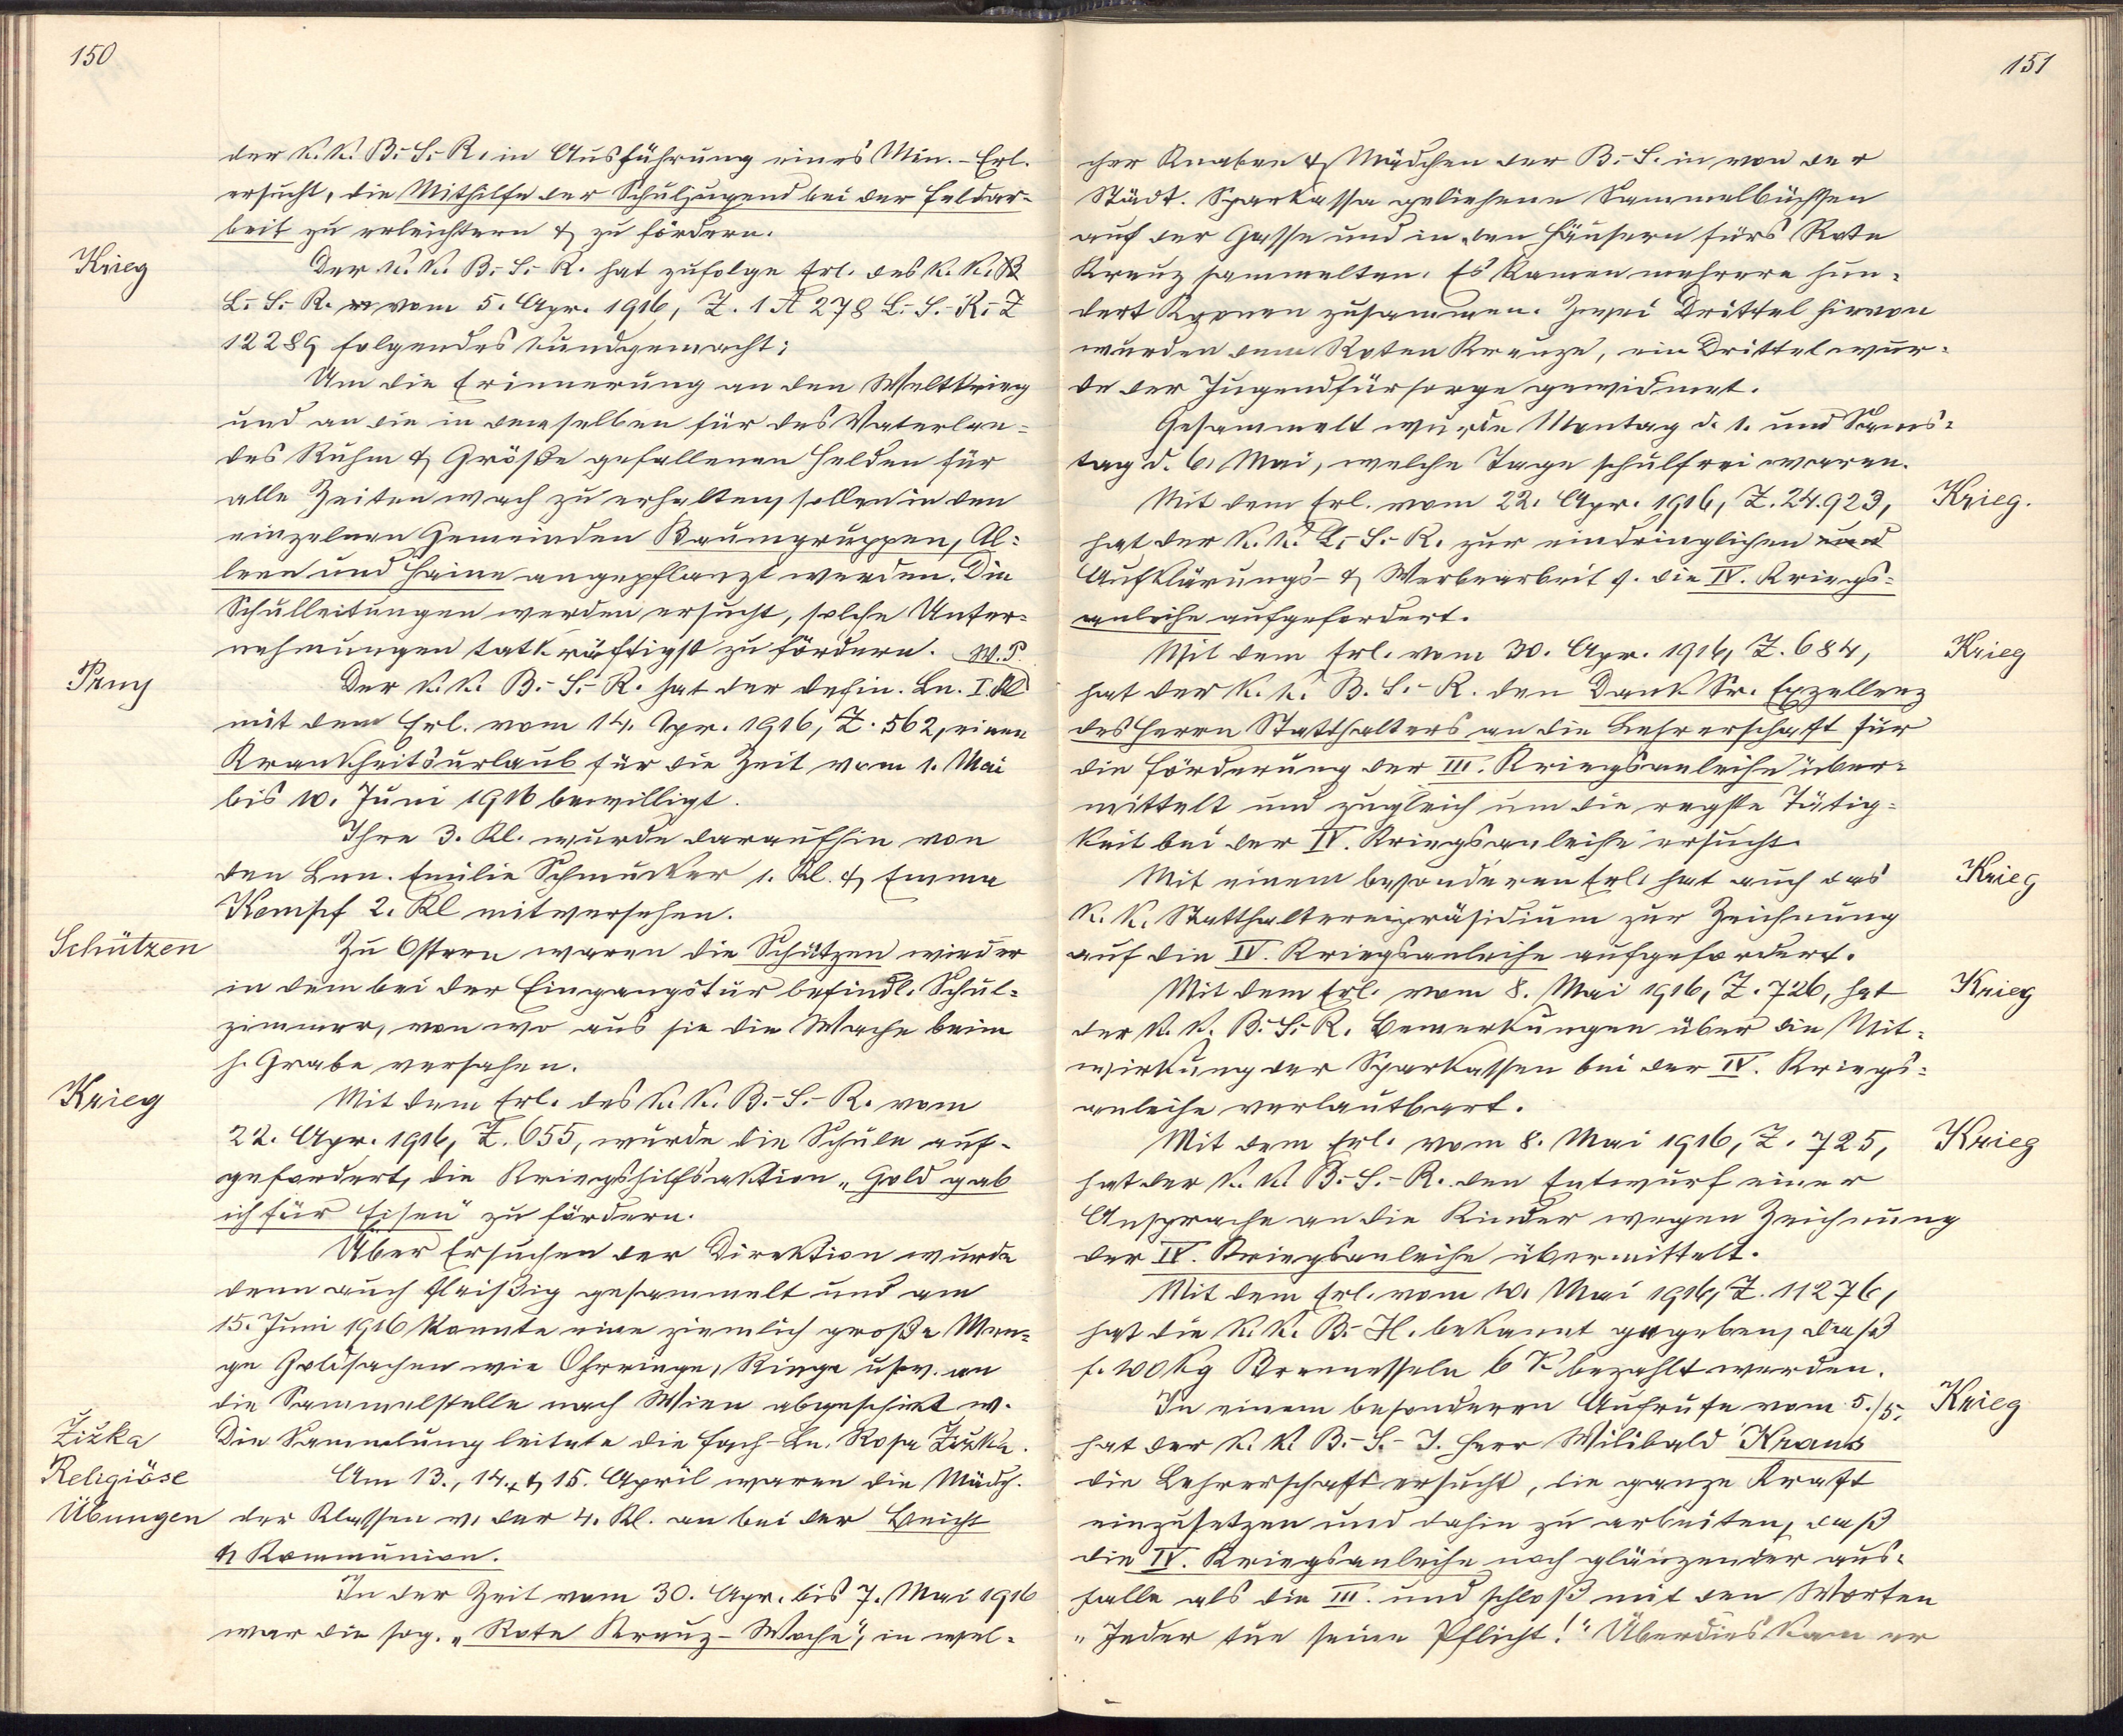 150
der k. k. B.-S.-R. in Ausführung eines Min.-Erl.
ersucht, die Mithilfe der Schuljugend bei der Feldar-
beit zu erleichtern & zu fördern.
Krieg
Der k. k. B.-S.-R. hat zufolge Erl. des k. k.
L.-S.-R. vom 5. Apr. 1916, Z. 1 A 278 L.-S.-R.-Z
12289 folgendes kundgemacht:
Um die Erinnerung an den Weltkrieg
und an die in demselben für des Vaterlan-
des Ruhm & Größe gefallenen Helden für
alle Zeiten wach zu erhalten, sollen in den
einzelnen Gemeinden Baumgruppen, Al-
leen und Haine angepflanzt werden. Die
Schulleitungen werden ersucht, solche Unter-
nehmungen tatkräftigst zu fördern. M. P.
Prny
Der k. k. B.-S.-R. hat der defin. Ln. I. Kl
mit dem Erl. vom 14. Apr. 1916, Z. 562, einen
Krankheitsurlaub für die Zeit vom 1. Mai
bis 10. Juni 1916 bewilligt.
Ihre 3. Kl. wurde daraufhin von
den Lnn. Emilie Schmucker 1. Kl. & Emma
Kempf 2. Kl mitversehen.
Schützen
Zu Ostern waren die Schützen wieder
in dem bei der Eingangstür befindl. Schul-
zimmer, von wo aus sie die Wache beim
h. Grabe versahen.
Krieg
Mit dem Erl. des k. k. B.-S.-R. vom
22. Apr. 1916, Z. 655, wurde die Schule auf-
gefordert, die Kriegshilfsaktion „Gold gab
ich für Eisen" zu fördern.
Über Ersuchen der Direktion wurde
denn auch fleißig gesammelt und am
15. Juni 1916 konnte eine ziemlich große Men-
ge Goldsachen wie Ohrringe, Ringe usw. an
die Sammelstelle nach Wien abgeschickt w.
Žižka
Die Sammlung leitete die Fach-Ln. Rosa Žižka.
Religiöse
Am 13., 14. & 15. April waren die Mädch.
Übungen
der Klassen v. der 4. Kl. an bei der Beicht
& Kommunion.
In der Zeit vom 30. Apr. bis 7. Mai 1916
war die sog. „Rote Kreuz-Woche", in wel-
151
cher Knaben & Mädchen der B.-S. in von der
Städt. Sparkassa geliehene Sammelbüchsen
auf der Gasse und in den Häusern fürs Rote
Kreuz sammelten. Es kamen mehrere hun-
dert Kronen zusammen. Zwei Drittel hievon
wurden dem Roten Kreuze, ein Drittel wur-
de der Jugendfürsorge gewidmet.
Gesammelt wurde Montag d. 1. und Sams-
tag d. 6. Mai, welche Tage schulfrei waren.
Mit dem Erl. vom 22. Apr. 1916, Z. 24.923,
Krieg.
hat der k. k. L.-S.-R. zur eindringlichen und
Aufklärungs- & Werbearbeit f. die IV. Kriegs-
anleihe aufgefordert.
Mit dem Erl. vom 30. Apr. 1916, Z. 684,
Krieg
hat der k. k. B.-S.-R. den Dank Sr. Exzellenz
des Herrn Statthalters an die Lehrerschaft für
die Förderung der III. Kriegsanleihe über-
mittelt und zugleich um die regste Tätig-
keit bei der IV. Kriegsanleihe ersucht.
Mit einem besonderen Erl. hat auch das
Krieg
k. k. Statthaltereipräsidium zur Zeichnung
auf die IV. Kriegsanleihe aufgefordert.
Mit dem Erl. vom 8. Mai 1916, Z. 726, hat
Krieg
der k. k. B.-S.-R. Bemerkungen über die Mit-
wirkung der Sparkassen bei der IV. Kriegs-
anleihe verlautbart.
Mit dem Erl. vom 8. Mai 1916, Z. 725,
Krieg
hat der k. k. B.-S.-R. den Entwurf einer
Ansprache an die Kinder wegen Zeichnung
der IV. Kriegsanleihe übermittelt.
Mit dem Erl. vom 10. Mai 1916, Z. 11276,
hat die k. k. B.-H. bekannt gegeben, dass
f. 100 kg Brennesseln 6 K bezahlt werden.
In einem besonderen Aufrufe vom 5./5.
Krieg
hat der k. k. B.-S.-I. Herr Wilibald Kraus
die Lehrerschaft ersucht, die ganze Kraft
einzusetzen und dahin zu arbeiten, daß
die IV. Kriegsanleihe noch glänzender aus-
falle als die III. und schloß mit den Worten
„Jeder tue seine Pflicht!" Überdies kam er